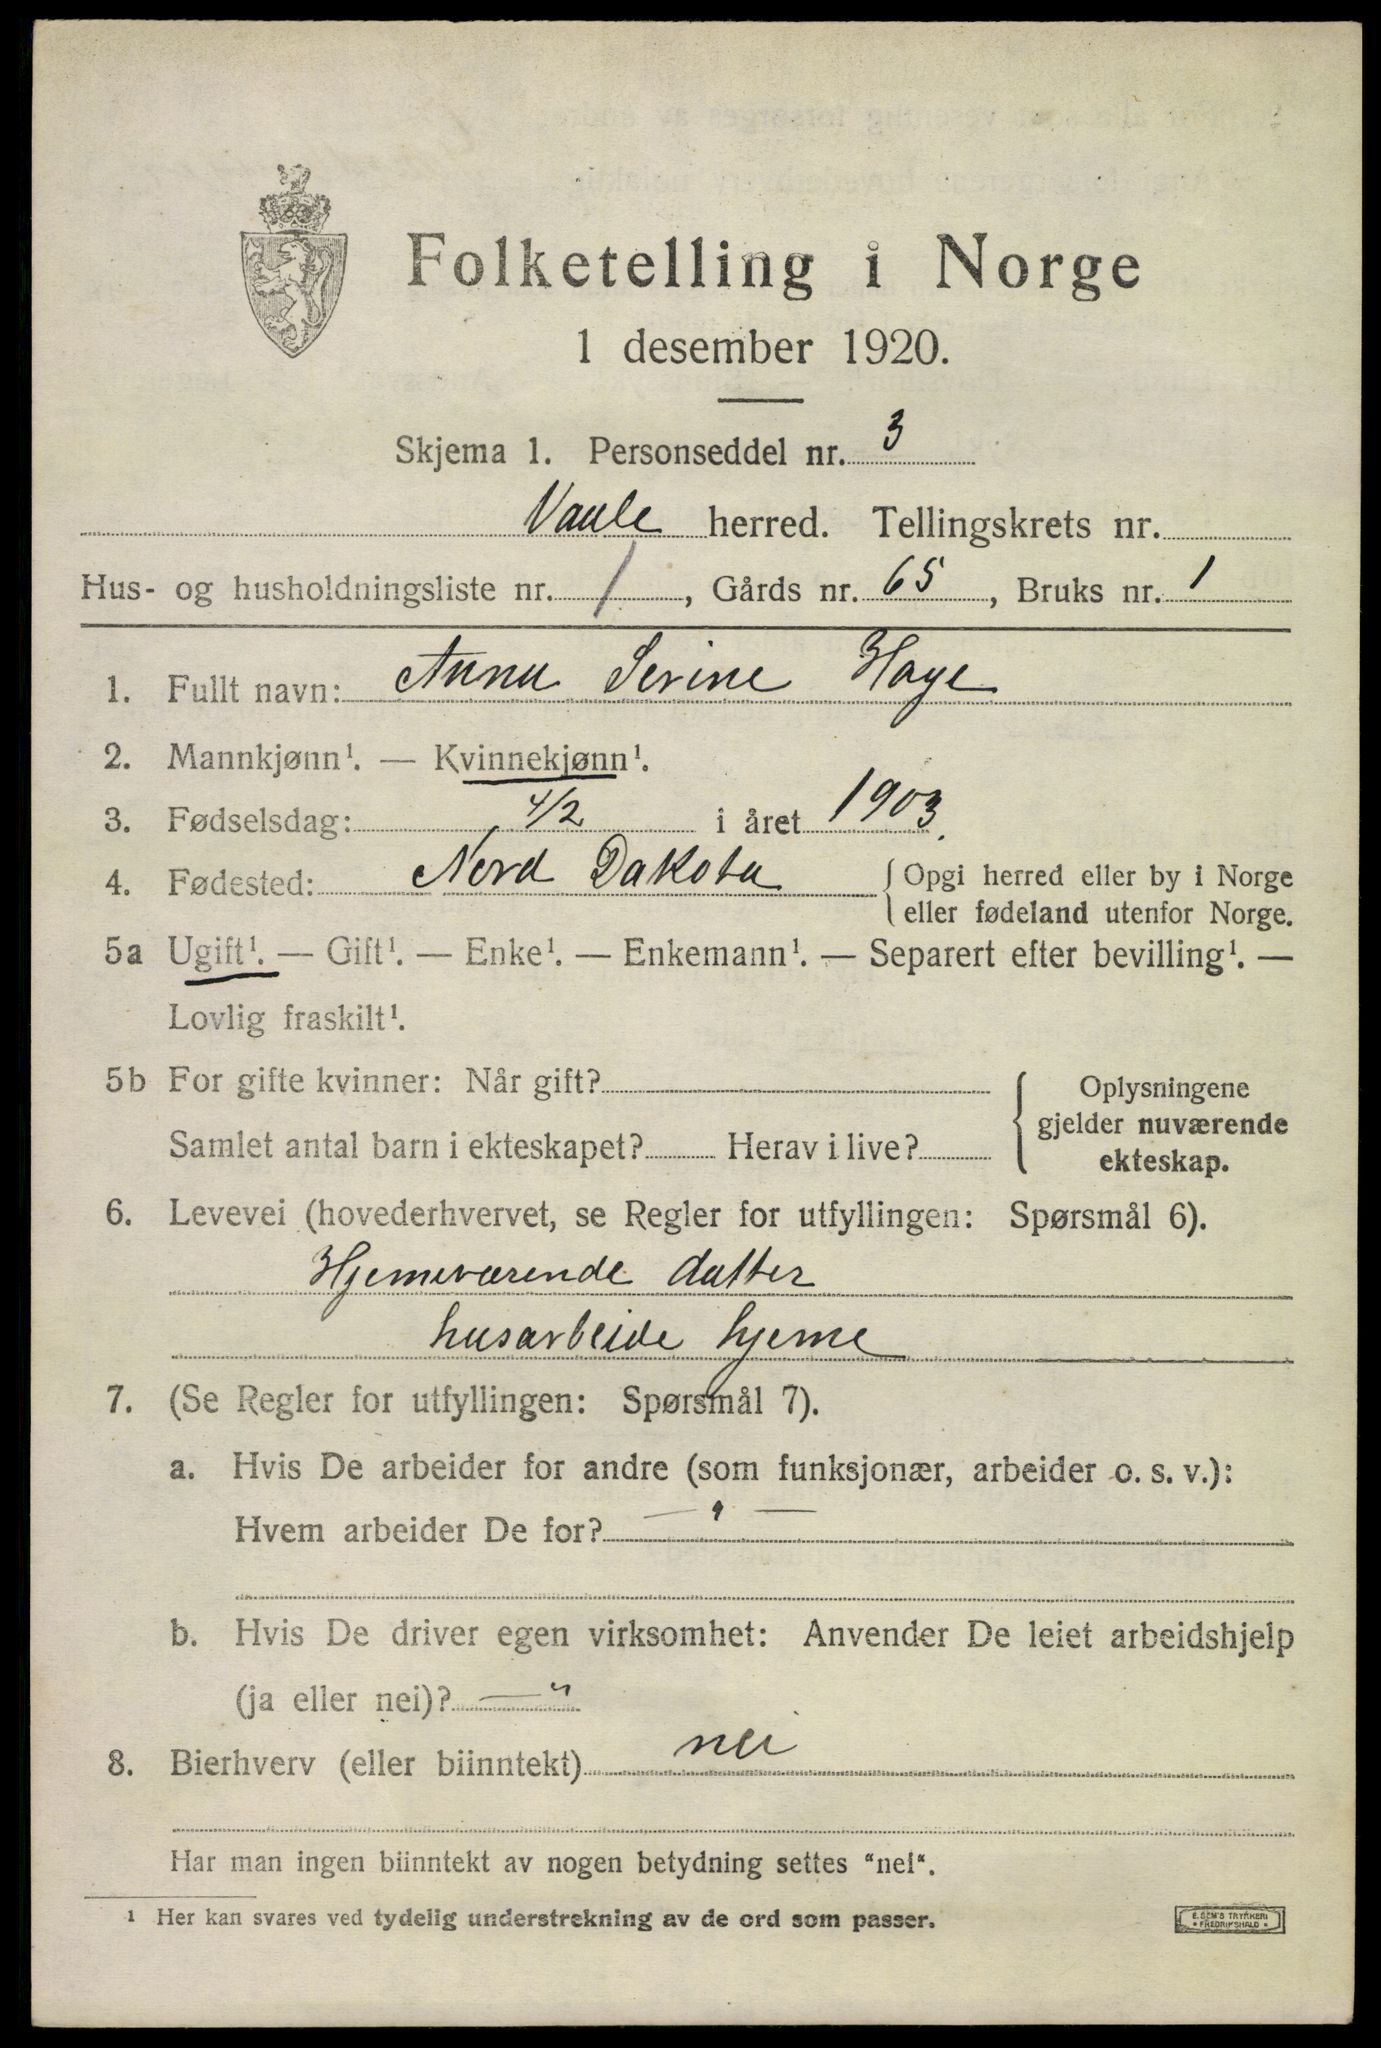 Folketelling i Norge
1 desember 1920.
Skjema 1. Personseddel nr. 3
Vaule herred. Tellingskrets nr.
Hus- og husholdningsliste nr. 1, Gårds nr. 65, Bruks nr. 1
1. Fullt navn: Anna Serine Hage
2. Mannkjønn¹. — Kvinnekjønn¹.
3. Fødselsdag: 4/2 i året 1903.
4. Fødested: Nord Dakota { Opgi herred eller by i Norge
eller fødeland utenfor Norge.
5a Ugift¹. — Gift¹. — Enke¹. — Enkemann¹. — Separert efter bevilling¹. —
Lovlig fraskilt¹.
5b For gifte kvinner: Når gift?
Samlet antal barn i ekteskapet? Herav i live?
{ Oplysningene
gjelder nuværende
ekteskap.
6. Levevei (hovederhvervet, se Regler for utfyllingen: Spørsmål 6).
Hjemeværende datter
husarbeide hjeme
7. (Se Regler for utfyllingen: Spørsmål 7).
a. Hvis De arbeider for andre (som funksjonær, arbeider o. s. v.):
Hvem arbeider De for? — " —
b. Hvis De driver egen virksomhet: Anvender De leiet arbeidshjelp
(ja eller nei)? — "
8. Bierhverv (eller biinntekt) nei
Har man ingen biinntekt av nogen betydning settes "nei".
¹ Her kan svares ved tydelig understrekning av de ord som passer.
E. SEM'S TRYKKERI
* FREDRIKSHALD *